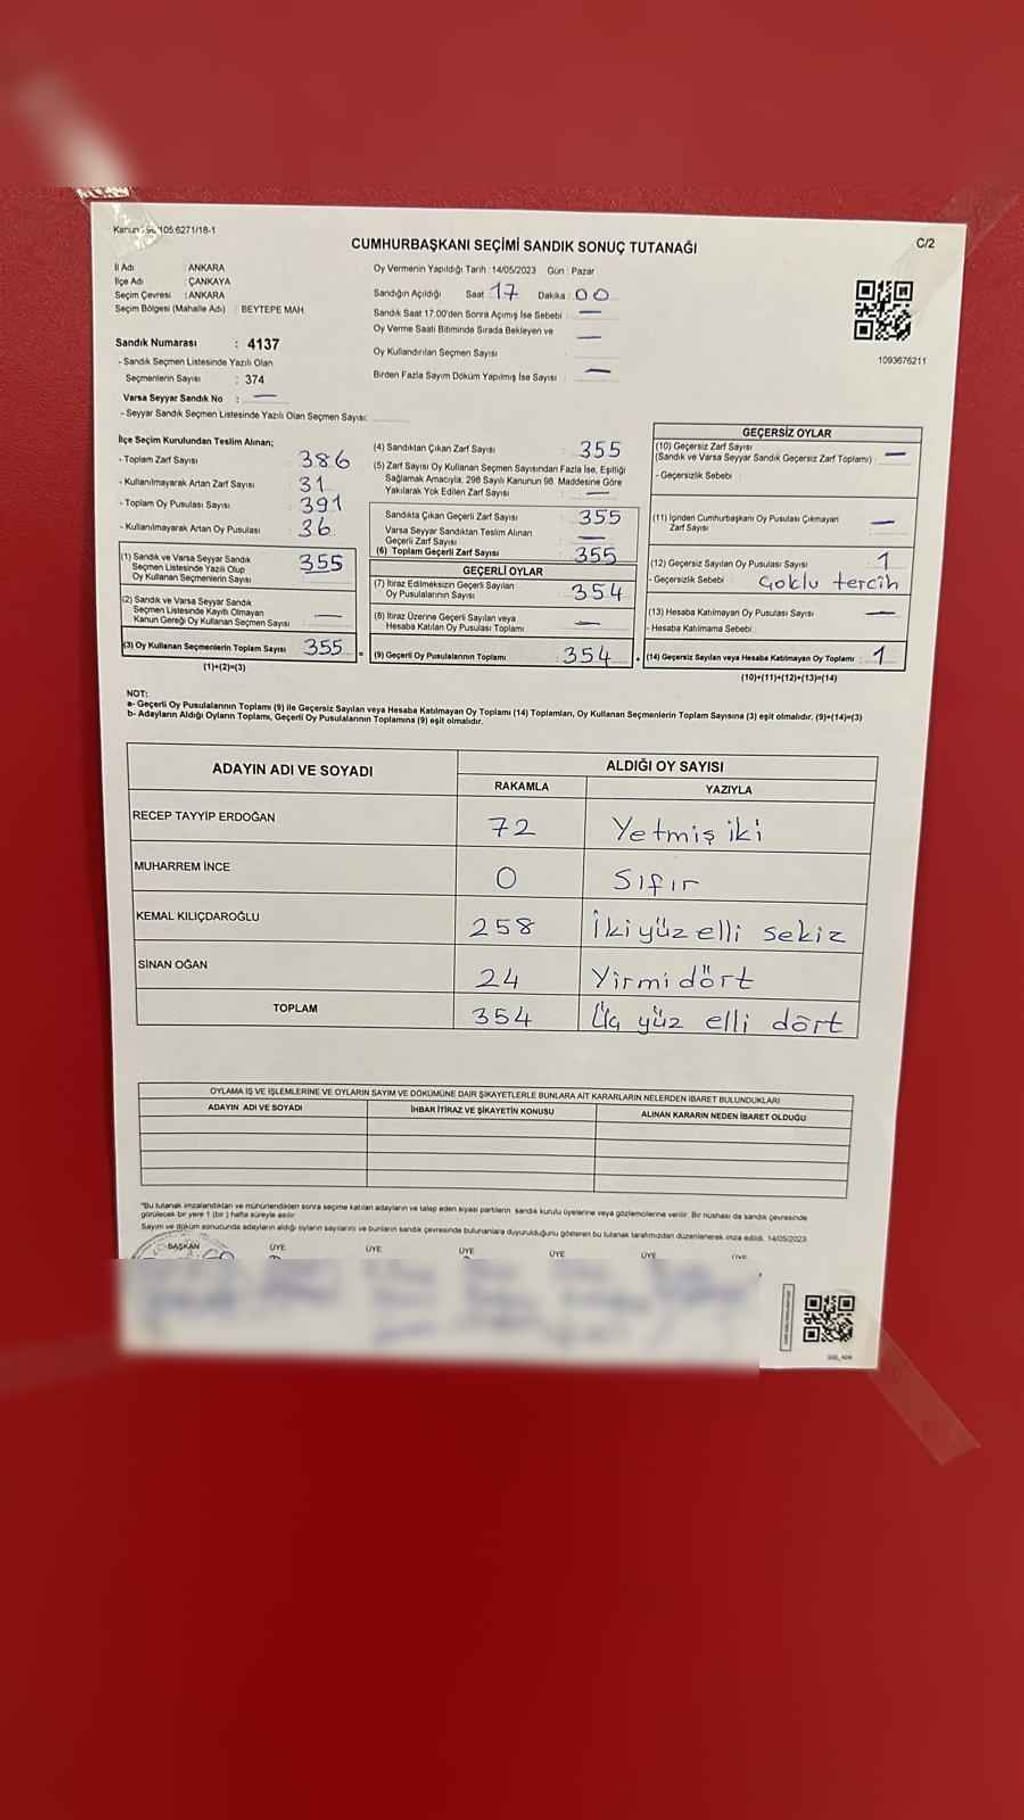 105.6271/18-1
CUMHURBAŞKANI SEÇİMİ SANDIK SONUÇ TUTANAĞI
C/2
İl Adı : ANKARA
İlçe Adı : ÇANKAYA
Seçim Çevresi : ANKARA
Seçim Bölgesi (Mahalle Adı) : BEYTEPE MAH.
Sandık Numarası : 4137
- Sandık Seçmen Listesinde Yazılı Olan
Seçmenlerin Sayısı : 374
Varsa Seyyar Sandık No : —
- Seyyar Sandık Seçmen Listesinde Yazılı Olan Seçmen Sayısı:
Oy Vermenin Yapıldığı Tarih : 14/05/2023 Gün : Pazar
Sandığın Açıldığı Saat : 17 Dakika : 00
Sandık Saat 17.00'den Sonra Açımış İse Sebebi : —
Oy Verme Saati Bitiminde Sırada Bekleyen ve
Oy Kullandırılan Seçmen Sayısı : —
Birden Fazla Sayım Döküm Yapılmış İse Sayısı : —
1093676211
İlçe Seçim Kurulundan Teslim Alınan;
- Toplam Zarf Sayısı : 386
- Kullanılmayarak Artan Zarf Sayısı : 31
- Toplam Oy Pusulası Sayısı : 391
- Kullanılmayarak Artan Oy Pusulası : 36
(1) Sandık ve Varsa Seyyar Sandık
Seçmen Listesinde Yazılı Olup
Oy Kullanan Seçmenlerin Sayısı : 355
(2) Sandık ve Varsa Seyyar Sandık
Seçmen Listesinde Kayıtlı Olmayan
Kanun Gereği Oy Kullanan Seçmen Sayısı : —
(3) Oy Kullanan Seçmenlerin Toplam Sayısı : 355
(1)+(2)=(3)
(4) Sandıktan Çıkan Zarf Sayısı : 355
(5) Zarf Sayısı Oy Kullanan Seçmen Sayısından Fazla İse, Eşitliği
Sağlamak Amacıyla, 298 Sayılı Kanunun 98. Maddesine Göre
Yakılarak Yok Edilen Zarf Sayısı : —
Sandıkta Çıkan Geçerli Zarf Sayısı : 355
Varsa Seyyar Sandıktan Teslim Alınan
Geçerli Zarf Sayısı : —
(6) Toplam Geçerli Zarf Sayısı : 355
GEÇERLİ OYLAR
(7) İtiraz Edilmeksizin Geçerli Sayılan
Oy Pusulalarının Sayısı : 354
(8) İtiraz Üzerine Geçerli Sayılan veya
Hesaba Katılan Oy Pusulası Toplamı : —
(9) Geçerli Oy Pusulalarının Toplamı : 354
GEÇERSİZ OYLAR
(10) Geçersiz Zarf Sayısı
(Sandık ve Varsa Seyyar Sandık Geçersiz Zarf Toplamı) : —
- Geçersizlik Sebebi :
(11) İçinden Cumhurbaşkanı Oy Pusulası Çıkmayan
Zarf Sayısı : —
(12) Geçersiz Sayılan Oy Pusulası Sayısı : 1
- Geçersizlik Sebebi : Çoklu tercih
(13) Hesaba Katılmayan Oy Pusulası Sayısı : —
- Hesaba Katılmama Sebebi :
(14) Geçersiz Sayılan veya Hesaba Katılmayan Oy Toplamı : 1
(10)+(11)+(12)+(13)=(14)
NOT:
a- Geçerli Oy Pusulalarının Toplamı (9) ile Geçersiz Sayılan veya Hesaba Katılmayan Oy Toplamı (14) Toplamları, Oy Kullanan Seçmenlerin Toplam Sayısına (3) eşit olmalıdır. (9)+(14)=(3)
b- Adayların Aldığı Oyların Toplamı, Geçerli Oy Pusulalarının Toplamına (9) eşit olmalıdır.
ADAYIN ADI VE SOYADI
ALDIĞI OY SAYISI
RAKAMLA YAZIYLA
RECEP TAYYİP ERDOĞAN 72 Yetmiş iki
MUHARREM İNCE 0 Sıfır
KEMAL KILIÇDAROĞLU 258 İki yüz elli sekiz
SİNAN OĞAN 24 Yirmi dört
TOPLAM 354 Üç yüz elli dört
OYLAMA İŞ VE İŞLEMLERİNE VE OYLARIN SAYIM VE DÖKÜMÜNE DAİR ŞİKAYETLERLE BUNLARA AİT KARARLARIN NELERDEN İBARET BULUNDUKLARI
ADAYIN ADI VE SOYADI İHBAR İTİRAZ VE ŞİKAYETİN KONUSU ALINAN KARARIN NEDEN İBARET OLDUĞU
"Bu tutanak imzalandıktan ve mühürlendikten sonra seçime katılan adayların ve talep eden siyasi partilerin sandık kurulu üyelerine veya gözlemcilerine verilir. Bir nüshası da sandık çevresinde
görülecek bir yere 1 (bir) hafta süreyle asılır.
Sayım ve döküm sonucunda adayların aldığı oyların sayılarını ve bunların sandık çevresinde bulunanlara duyurulduğunu gösteren bu tutanak tarafımızdan düzenlenerek imza edildi. 14/05/2023
BAŞKAN ÜYE ÜYE ÜYE ÜYE ÜYE